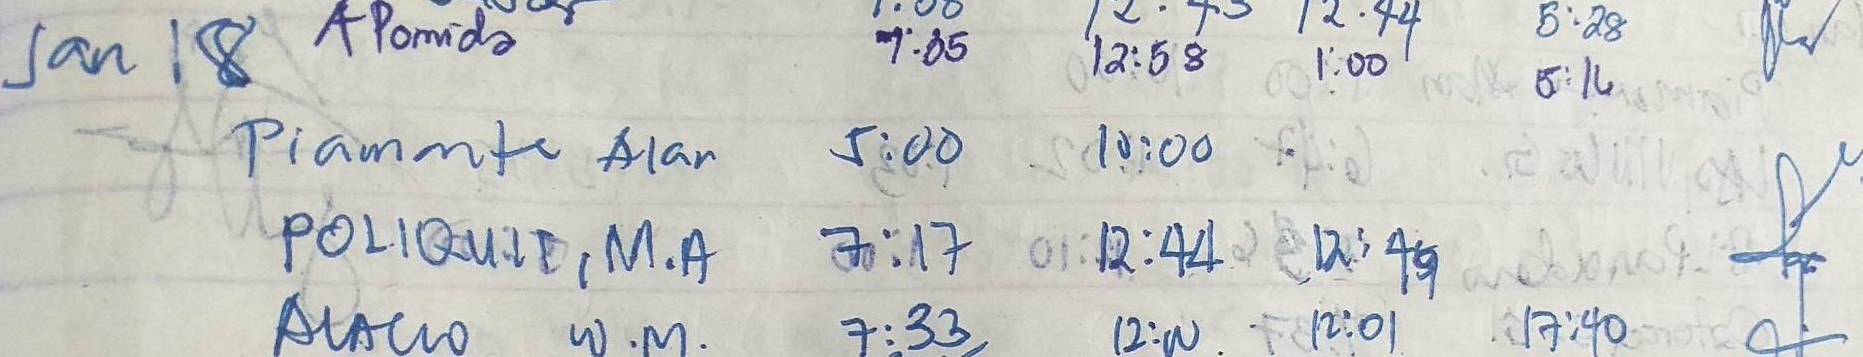 12:43 12:44 5:28
Jan 18 A Pomida 7:05 12:58 1:00 5:16
Piamonte Alan 5:00 10:00
POLIQUIT, M.A 7:17 12:44 12:49
W.M. 7:33 12:01 17:40